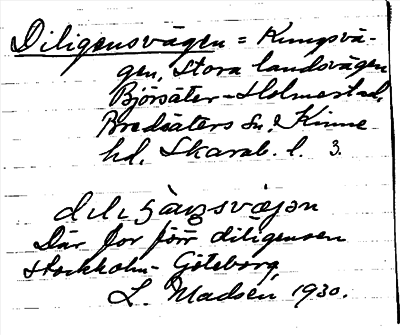 Diligensvägen = Kungsvä-
gen, Stora landsvägen
Björsäter–Holmestad,
Bredsäters sn, Kinne
hd, Skarab. l. 3.
Där for förr diligensen
Stockholm–Göteborg,
L. Madsén 1930.